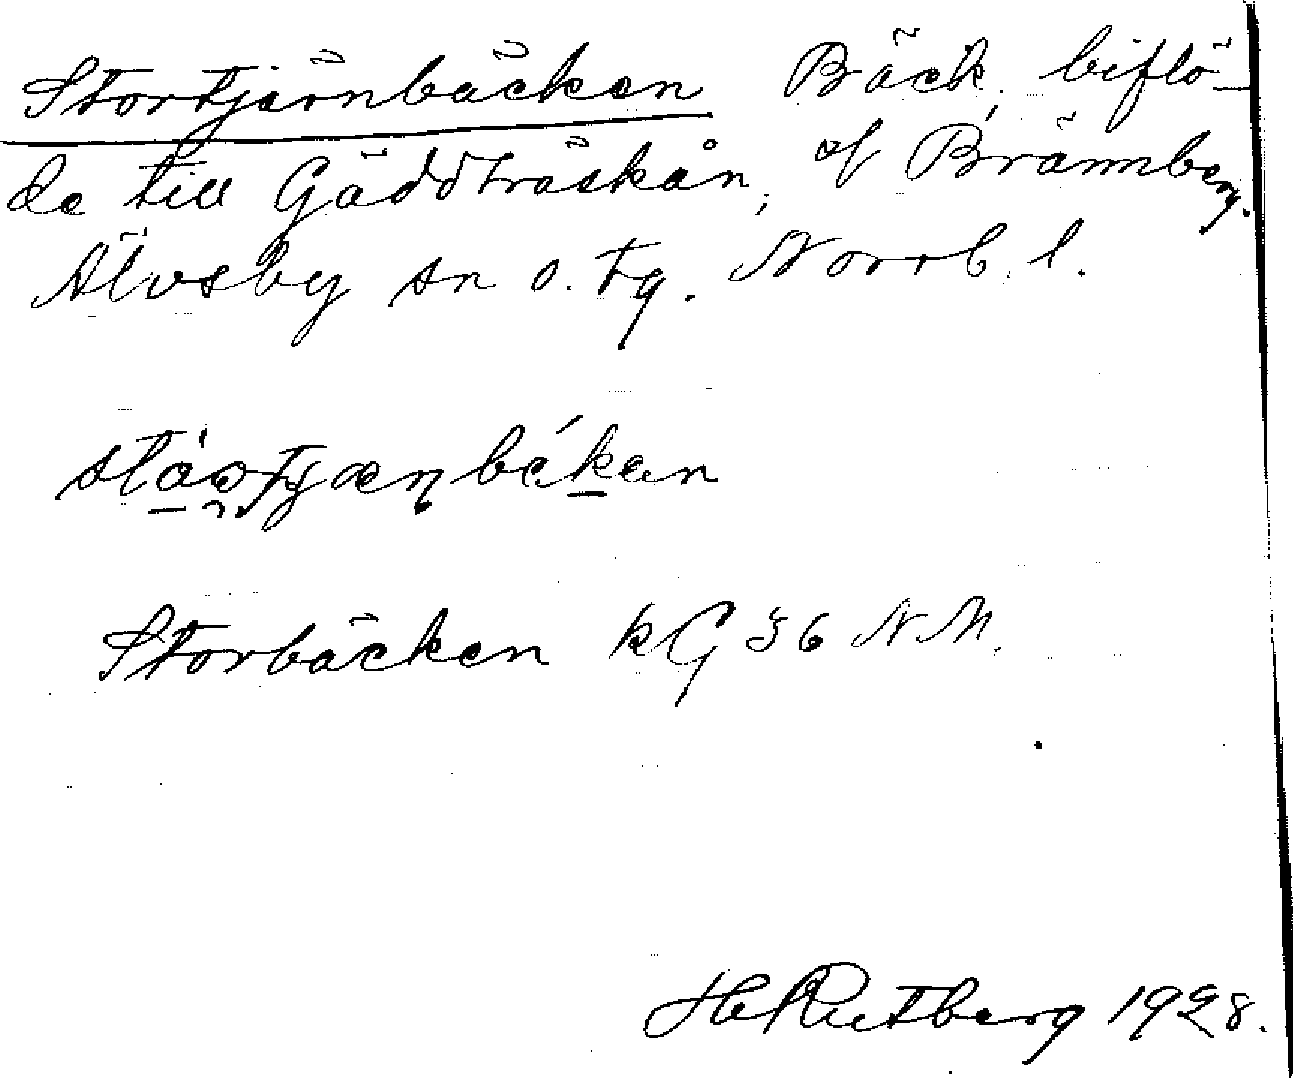 Stortjärnbäcken Bäck, biflö-
de till Gäddträskån, af Brännberg.
Älvsby sn o. tg. Norrb. l.
Storbäcken kG 36 N.M.
H Rutberg 1928.